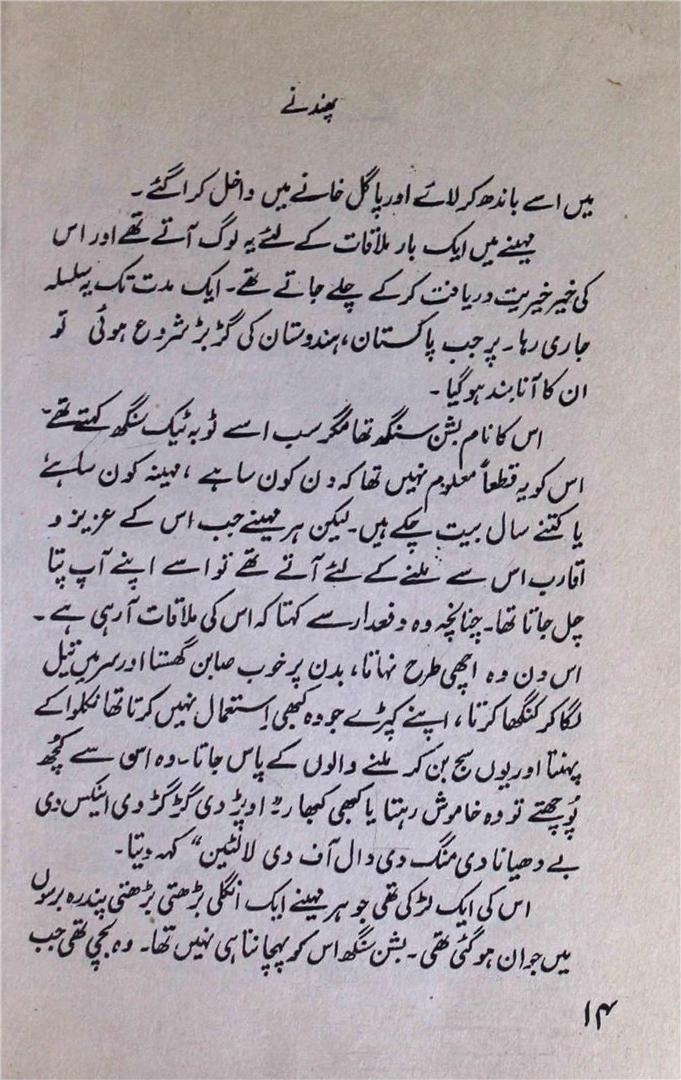 پھندنے
میں اسے باندھ کر لائے اور پاگل خانے میں داخل کرا گئے۔
مہینے میں ایک بار ملاقات کے لئے یہ لوگ آتے تھے اور اس
کی خیر خیریت دریافت کر کے چلے جاتے تھے۔ ایک مدت تک یہ سلسلہ
جاری رہا۔ پر جب پاکستان، ہندوستان کی گڑبڑ شروع ہوئی تو
ان کا آنا بند ہو گیا۔
اس کا نام بشن سنگھ تھا مگر سب اسے ٹوبہ ٹیک سنگھ کہتے تھے۔
اس کو یہ قطعاً معلوم نہیں تھا کہ دن کون سا ہے، مہینہ کون سا ہے،
یا کتنے سال بیت چکے ہیں۔ لیکن ہر مہینے جب اس کے عزیز و
اقارب اس سے ملنے کے لئے آتے تھے تو اسے اپنے آپ پتا
چل جاتا تھا۔ چنانچہ وہ دفعدار سے کہتا کہ اس کی ملاقات آرہی ہے۔
اس دن وہ اچھی طرح نہاتا، بدن پر خوب صابن گھستا اور سر میں تیل
لگا کر کنگھا کرتا، اپنے کپڑے جو وہ کبھی اِستعمال نہیں کرتا تھا نکلوا کے
پہنتا اور یوں سج بن کر ملنے والوں کے پاس جاتا۔ وہ اس سے کُچھ
پُوچھتے تو وہ خاموش رہتا یا کبھی کبھار "اوپڑ دی گڑ گڑ دی اینکس دی
بے دھیانا دی منگ دی دال آف دی لالٹین" کہہ دیتا۔
اس کی ایک لڑکی تھی جو ہر مہینے ایک انگلی بڑھتی بڑھتی پندرہ برسوں
میں جوان ہو گئی تھی۔ بشن سنگھ اس کو پہچانتا ہی نہیں تھا۔ وہ بچی تھی جب
۱۴